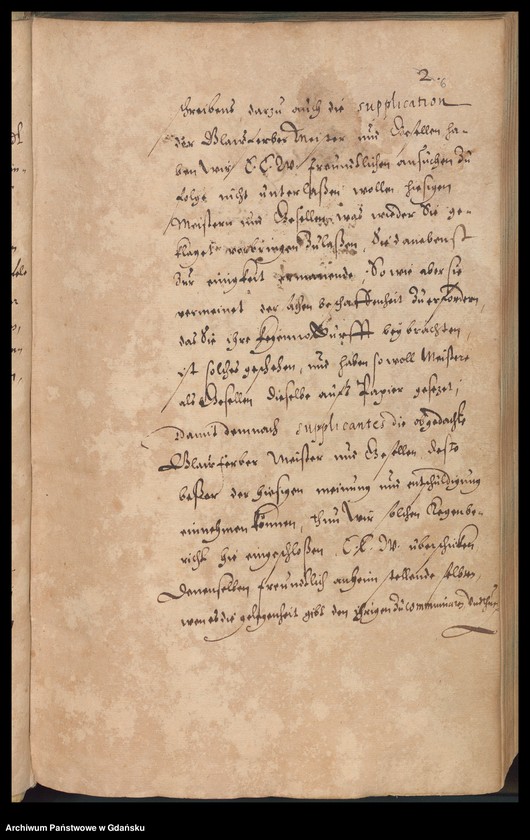 2.
schreibens, darzu auch die supplication
der Blawferber Meister und Gesellen ha-
ben wir E. E. W. freundlichen ansuchen zu
folge nicht unterlaßen wollen hiesigen
Meistern und Gesellen, was wieder Sie ge-
klaget vorbringen zulaßen, Sie danebenst
zur einigkeit Sowie aber sie
vermeinet der sachen beschaffenheit zu erfordern,
das Sie ihre gegennotturfft beybrachten,
ist solches geschehen, und haben sowoll Meistere
als Gesellen dieselbe aufs Papier gesezet,
Damit demnach supplicantes die obgedachte
Blawferber Meister und Gesellen desto
beßer der hiesigen meinung und entschuldigung
einnehmen können, thun wir solchen Kegenbe-
richt hie eingeschloßen, E. E. W. uberschicken
Denenselben freundlich anheim stellende, selben,
wen es die gelegenheit gibt den ihrigen zu communiciren
Archiwum Państwowe w Gdańsku